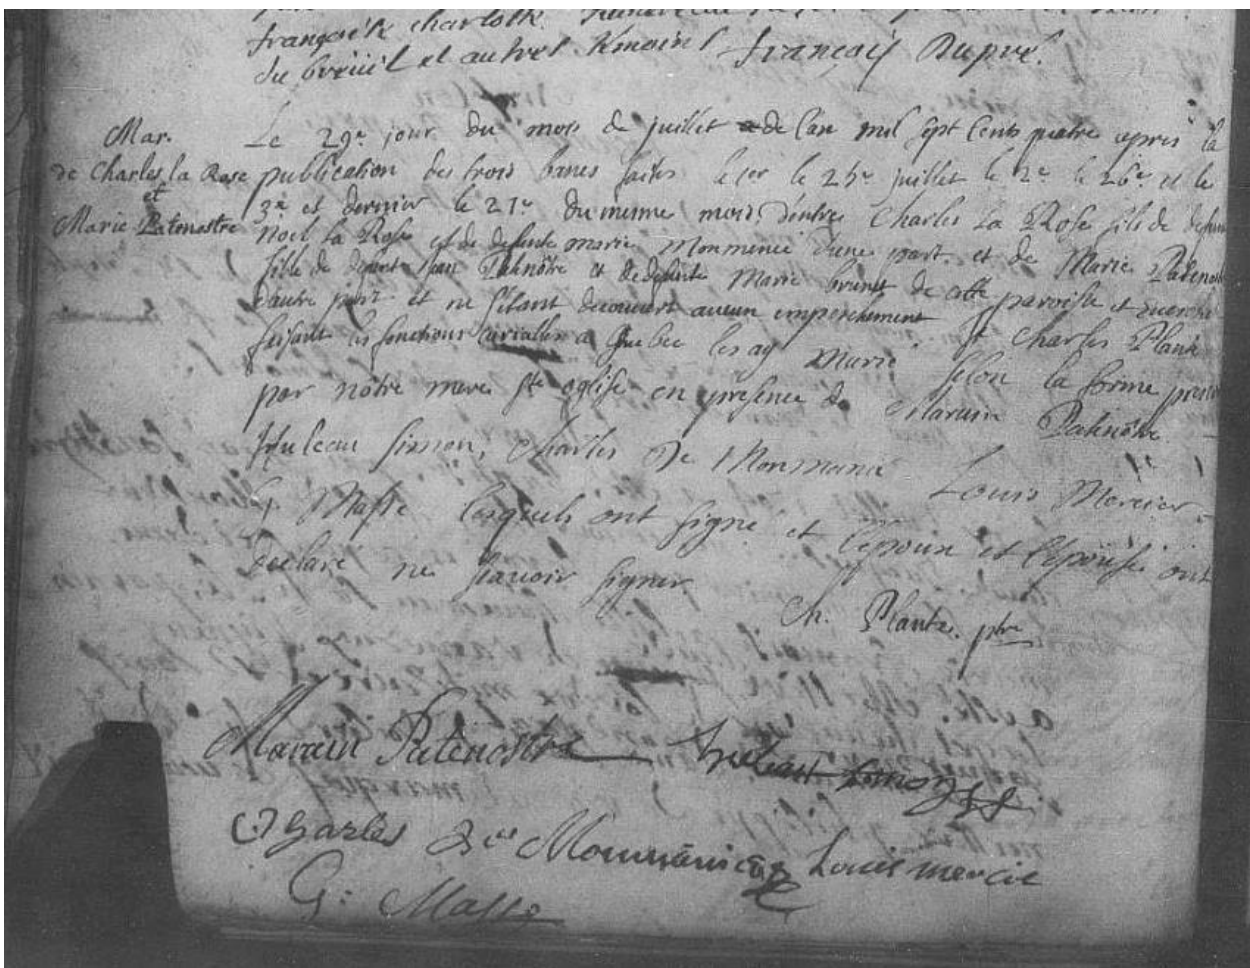 françoise charlotte
du breüil et autres témoins françois Dupré.
Mar.
de Charles la Rose
et
Marie Patenostre
Le 29e jour du mois de juillet de l'an mil sept cents quatre apres la
publication des trois bancs faites le 1er le 25e juillet le 2e le 26e et le
3e et dernier le 27e du meme mois d'entre Charles La Rose fils de defunt
Noel la Rose et de defunte marie Monmenié d'une part et de Marie Patenostre
fille de defunt Jean Patnôtre et de defunte Marie brunet de cette paroisse
d'autre part et ne s'etant decouvert aucun empeschement Je Charles Plante
faisant les fonctions curialles a Quebec les ay Marié selon la forme prescrite
par nôtre mere Ste eglise en presence de Marain Patnôtre
Huleau simon, Charles De Monmanié Louis Mercier
G Masse lesquels ont signé et l'epoux et l'épouse ont
declaré ne scavoir signer
Ch. Plante. ptre
Marain Patenostre simon
Charles De Monmainier Louis mercie
G: Masse